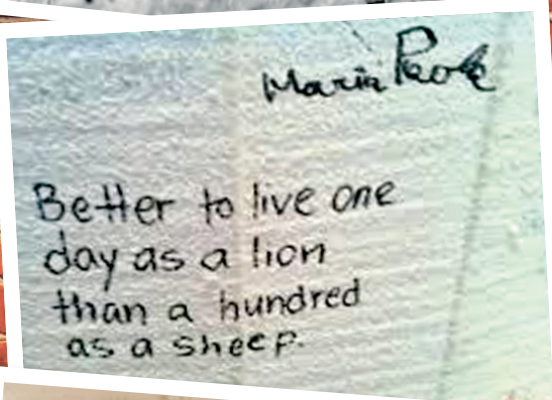 Maria Paola
Better to live one
day as a lion
than a hundred
as a sheep.